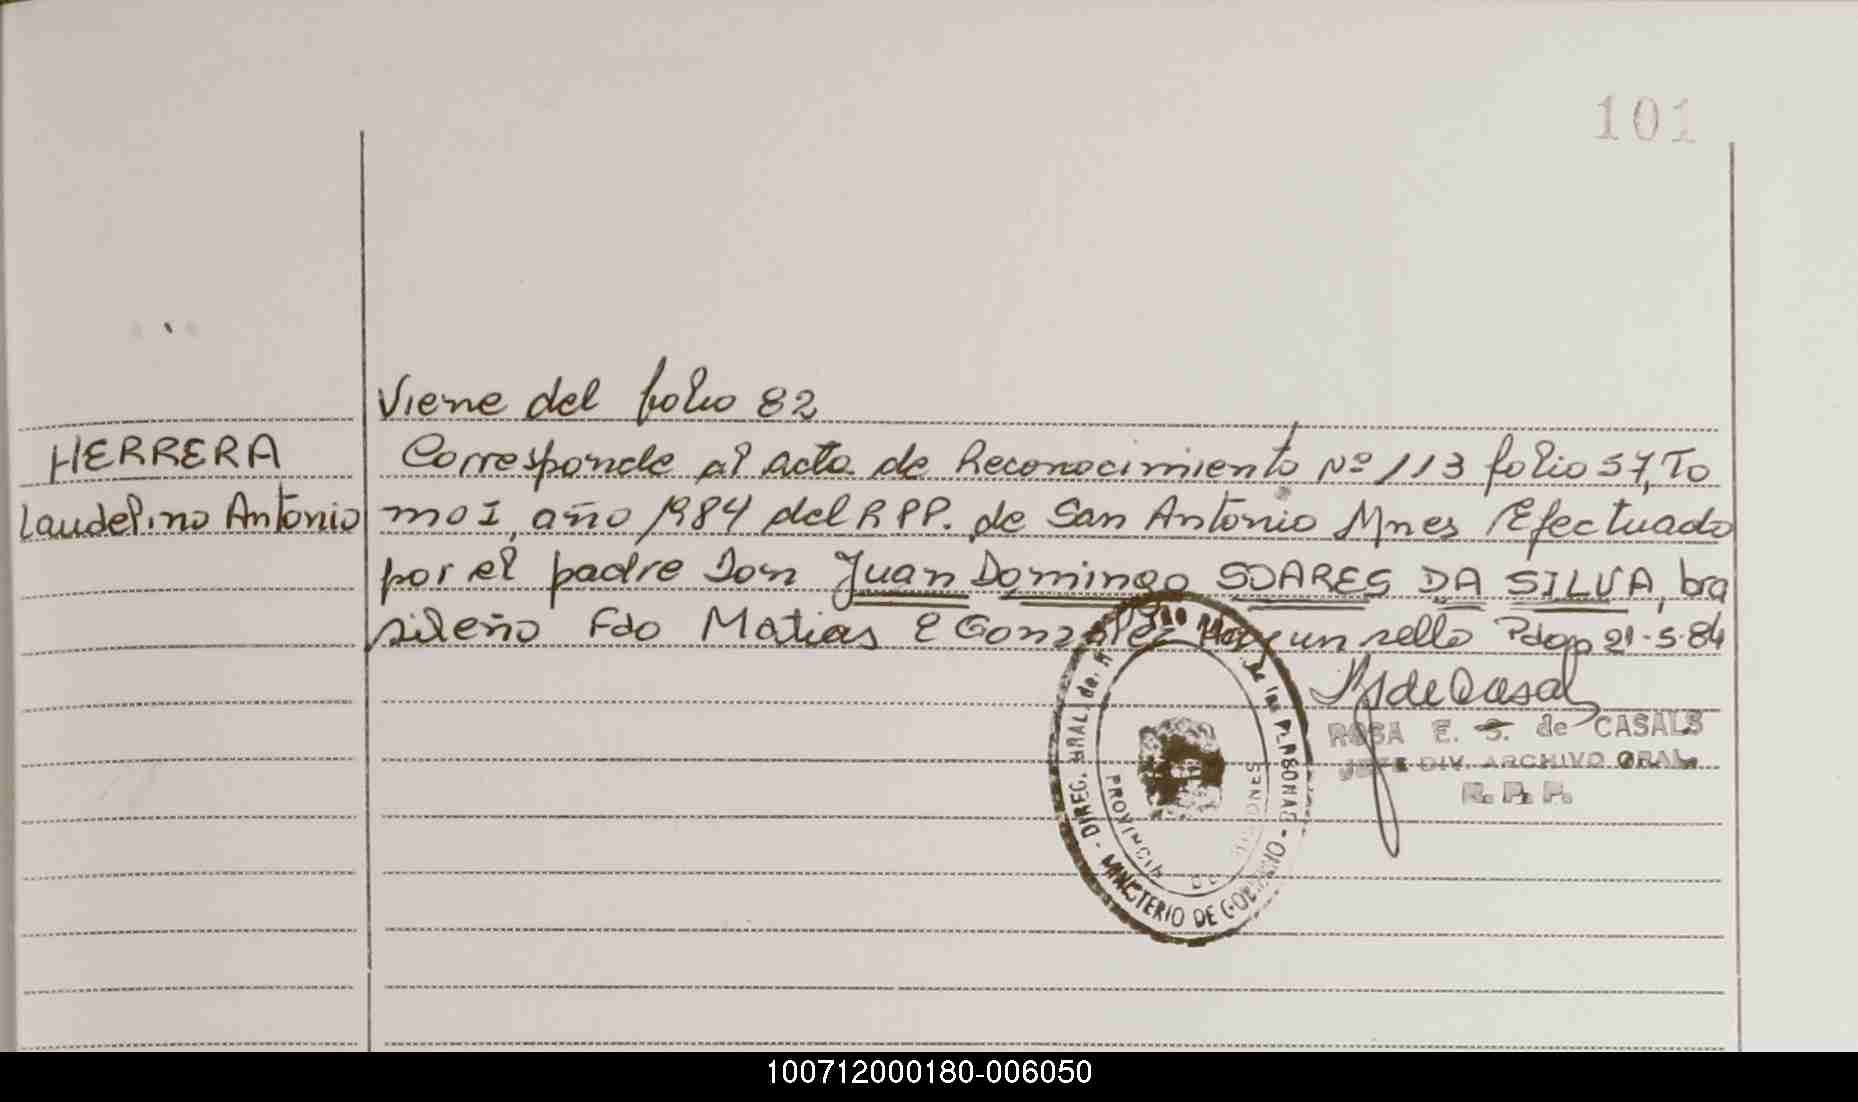 101
Viene del folio 82
HERRERA
Corresponde al acta de Reconocimiento Nº 113 folio 57, To
Laudelino Antonio
mo I, año 1984 del RPP. de San Antonio Mnes Efectuado
por el padre Don Juan Domingo SOARES DA SILVA, bra
sileño Fdo Matias E Gonzalez Hay un sello Pdas 21-5-84
ROSA E. S. de CASALS
JEFE DIV. ARCHIVO GRAL.
R. P. P.
DIREC. GRAL. de las PERSONAS - MINISTERIO DE GOBIERNO -
PROVINCIA DE MISIONES
100712000180-006050